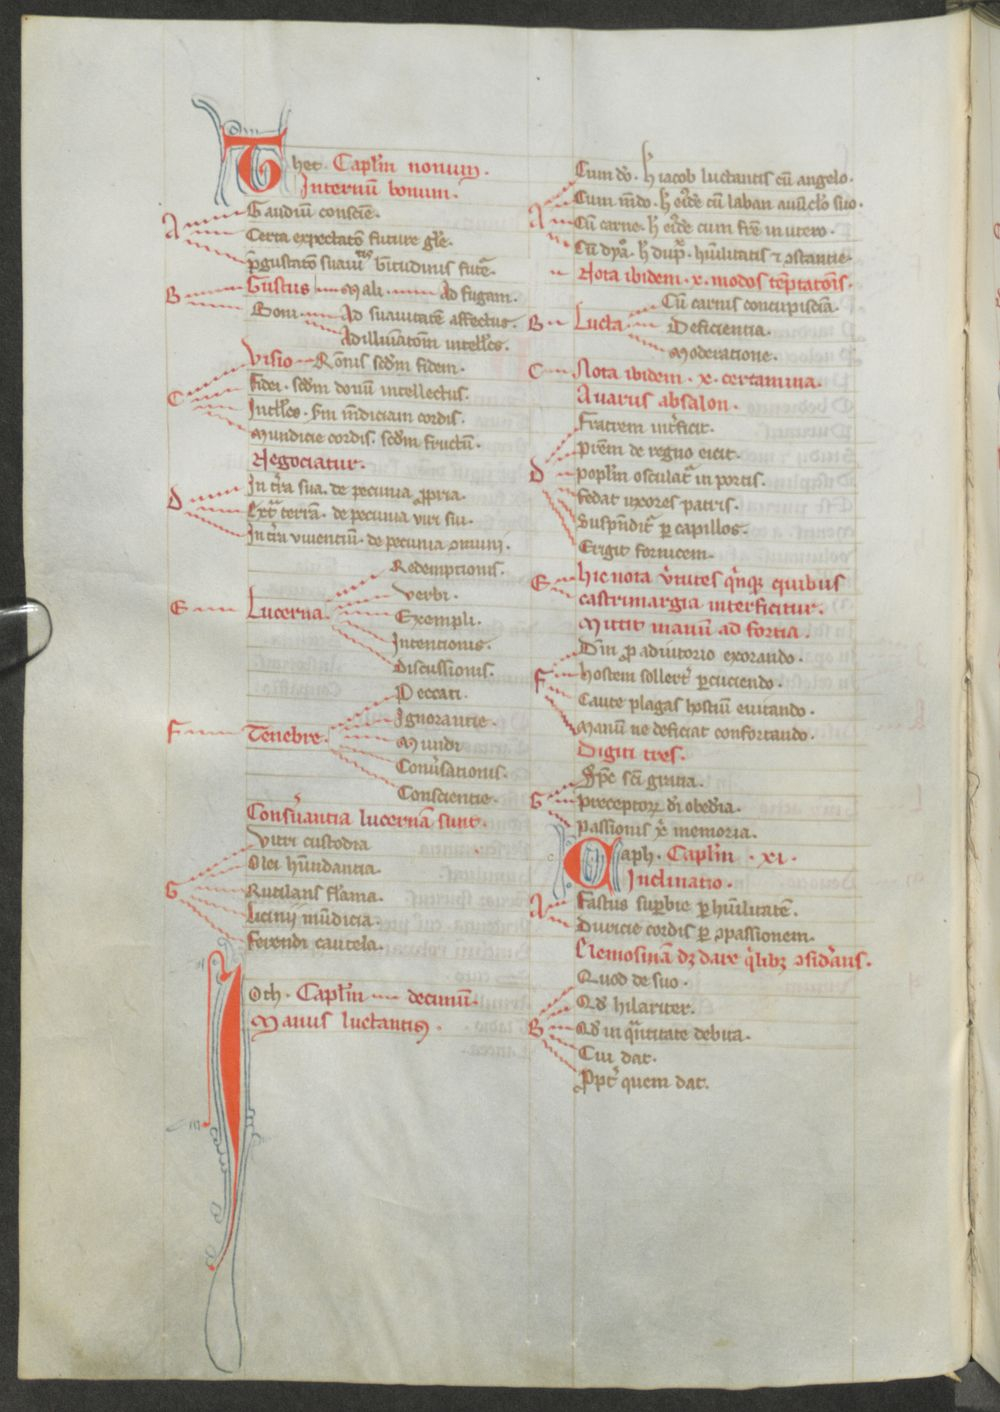 Thet. Capl'm nonum.
Internu bonum.
A Gaudiu conscie.
Certa expectato future gle.
pgustato suauitis bitudinis fute.
B Gustus Mali Ad fugam.
Boni Ad suauitate affectus.
Ad illuiatom intellcs.
Visio Ronis scdm fidem.
C Fidei. scdm donu intellectus.
Intllcs. sm mdiciam cordis.
Mundicie cordis. scdm fructu.
Negociatur.
D In tra sua. de pecunia ppria.
Ext terra. de pecunia viri sui.
In tra viuentiu. de pecunia omuni.
Redemptionis.
Verbi.
E Lucerna. Exempli.
Intentionis.
Discussionis.
Peccati.
Ignorantie.
F Tenebre. Mundi
Conusationis.
Conscientie.
Consuantia lucerna sunt.
Vitri custodia
Olei hundantia
G Rutilans flama.
Licinij mudicia.
Ferendi cautela.
Ioth. Capl'm decimu.
Manus luctantis.
Cum do. h iacob luctantis cu angelo.
Cum mdo. h eide cu laban auclo suo.
A Cu carne. h eide cum fre in utero.
Cu dyao. h dup. huilitatis ⁊ ostantie.
Nota ibidem .x. modos teptatois.
Cu carnis concupiscia.
B Lucta Deficientia.
Moderatione.
C Nota ibidem .x. certamina.
Auarus absalon.
Fratrem inficit.
prem de regno eicit.
D poplm osculat in portis.
fedat uxores patris.
Suspendit p capillos.
Erigit fornicem.
E hic nota vtutes qnque quibus
castrimargia interficitur.
Mittit manu ad fortia.
Dim p adiutorio exorando.
F hostem sollert pcuciendo.
Caute plagas hostiu euitando.
Manu ne deficiat confortando.
Digiti tres.
Spc sci gratia.
G preceptor di obedia.
passionis x memoria.
Caph. Capl'm .xi.
Inclinatio.
A Fastus supbie p huilitate.
Duricie cordis p opassionem.
Elemosina dz dare qlibz osidans.
Quod de suo.
Qd hilariter.
B Qd in qtitate debita.
Cui dat.
Ppt quem dat.